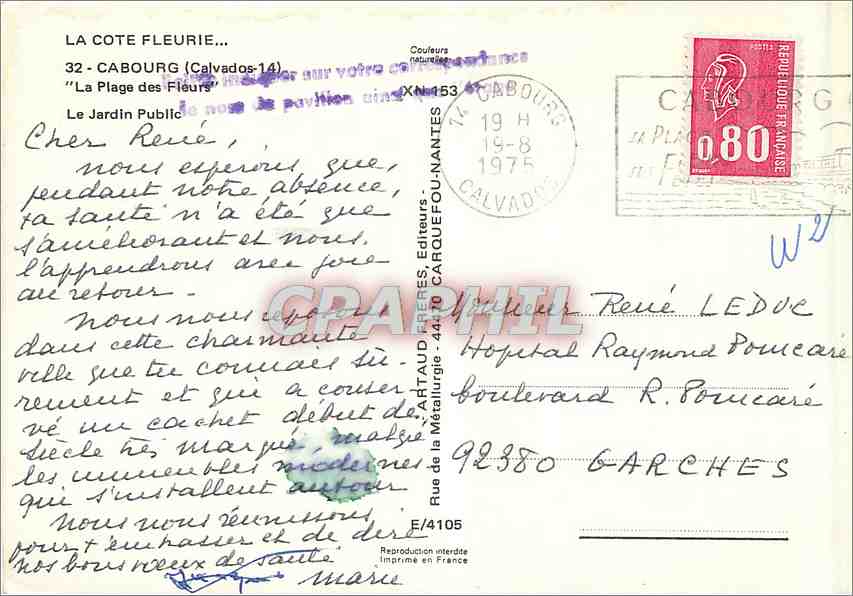 LA COTE FLEURIE...
32 - CABOURG (Calvados-14)
"La Plage des Fleurs"
Le Jardin Public
Couleurs
naturelles
XN 153
sur votre correspondance
le nom de pavillon ainsi que
Cher René,
nous espérons que,
pendant notre absence,
ta santé n'a été que
s'améliorant et nous
l'apprendrons avec joie
au retour -
Nous nous reposons
dans cette charmante
ville que tu connais sû-
rement et qui a conser
vé un cachet début de
siècle très marqué, malgré
les immeubles modernes
qui s'installent autour
Nous nous réunissons
pour t'embrasser et de dire
nos bons voeux de santé
Marie
ARTAUD FRERES, Editeurs -
Rue de la Métallurgie - 44470 CARQUEFOU-NANTES
E/4105
Reproduction interdite
Imprimé en France
14 CABOURG
19 H
19-8
1975
CALVADOS
CABOURG
SA PLAGE
SES FÊTES
POSTES
REPUBLIQUE FRANÇAISE
0,80
W2
Monsieur René LEDUC
Hopital Raymond Poincaré
boulevard R. Poincaré
92380 GARCHES
CPAPHIL